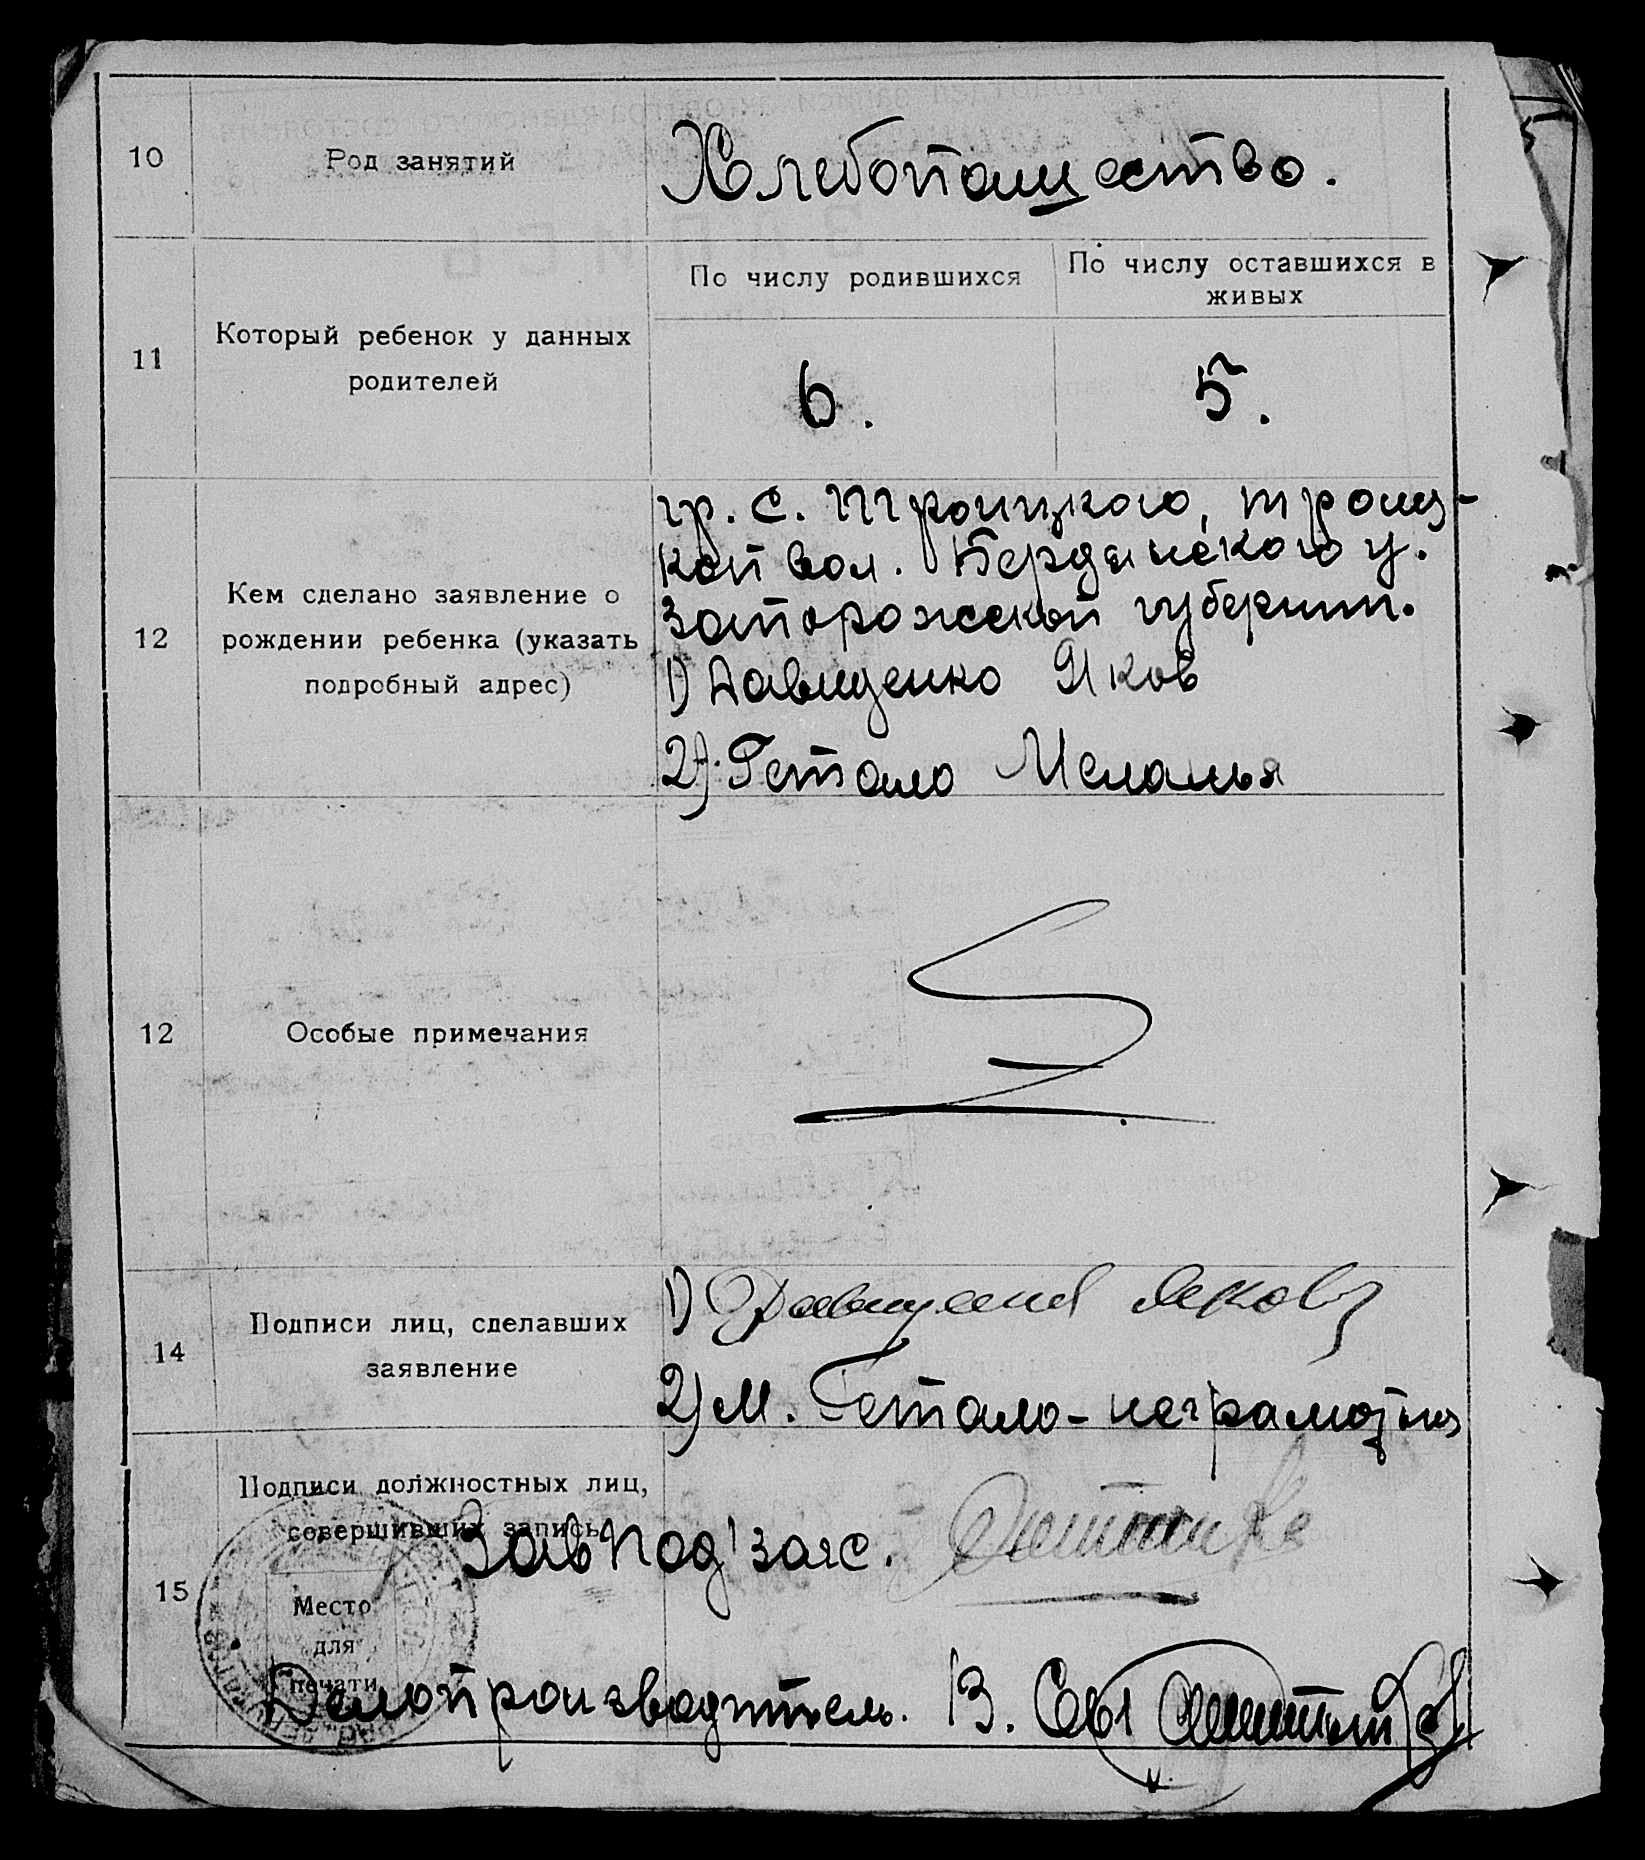 10
Род занятий
Хлебопашество.
11
Который ребенок у данных
родителей
По числу родившихся
По числу оставшихся в
живых
6.
5.
12
Кем сделано заявление о
рождении ребенка (указать
подробный адрес)
гр. с. Троицкого, троиц-
кой вол. Бердянского у.
Запорожской губернии.
1) Давиденко Яков
2) Гетало Меланья
12
Особые примечания
14
Подписи лиц, сделавших
заявление
1) Давиденко Яков
2) М. Гетало - неграмотна
15
Подписи должностных лиц,
совершивших запись
Завпод'загс.
Место
для
печати
Делопроизводитель. В.